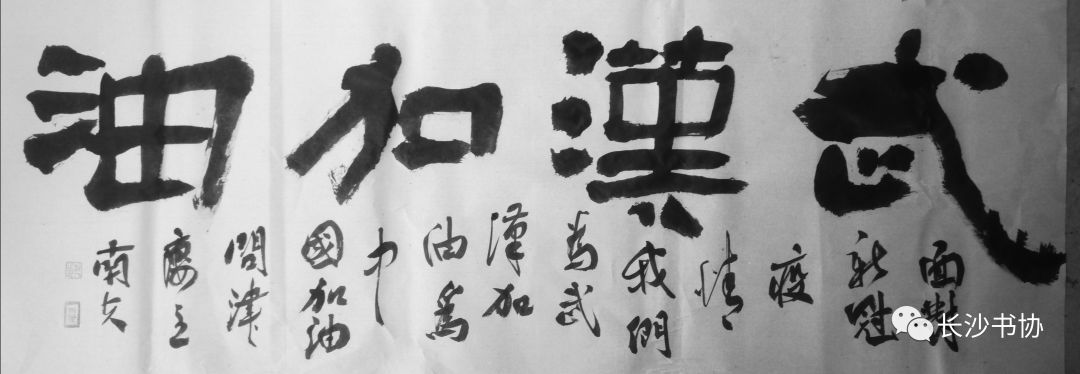 武漢加油
面對
新冠
疫
情
我們
為武
漢加
油為
中
國加油
問津
主
南
长沙书协